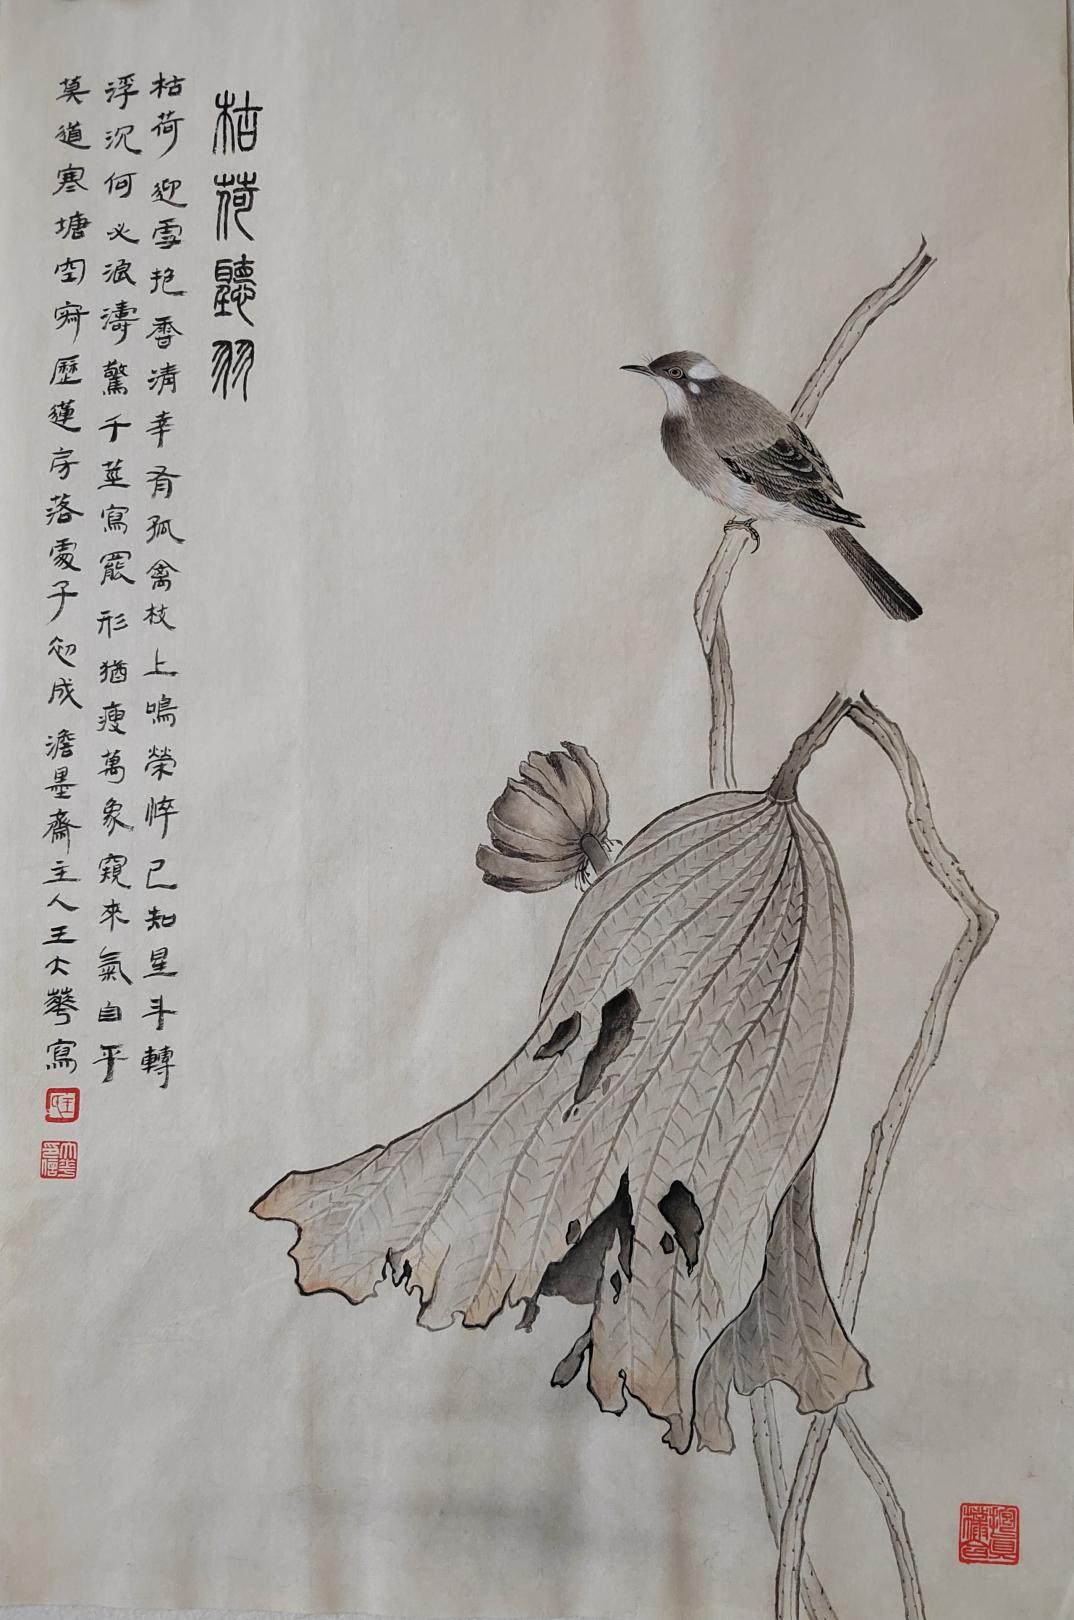 枯荷聽羽
枯荷迎雪抱香清幸有孤禽枝上鳴榮悴已知星斗轉
浮沉何必浪濤驚千莖寫罷形猶瘦萬象窺來氣自平
莫道寒塘空寂歷蓮房落處子初成 澹墨齋主人王大華寫
大華印信